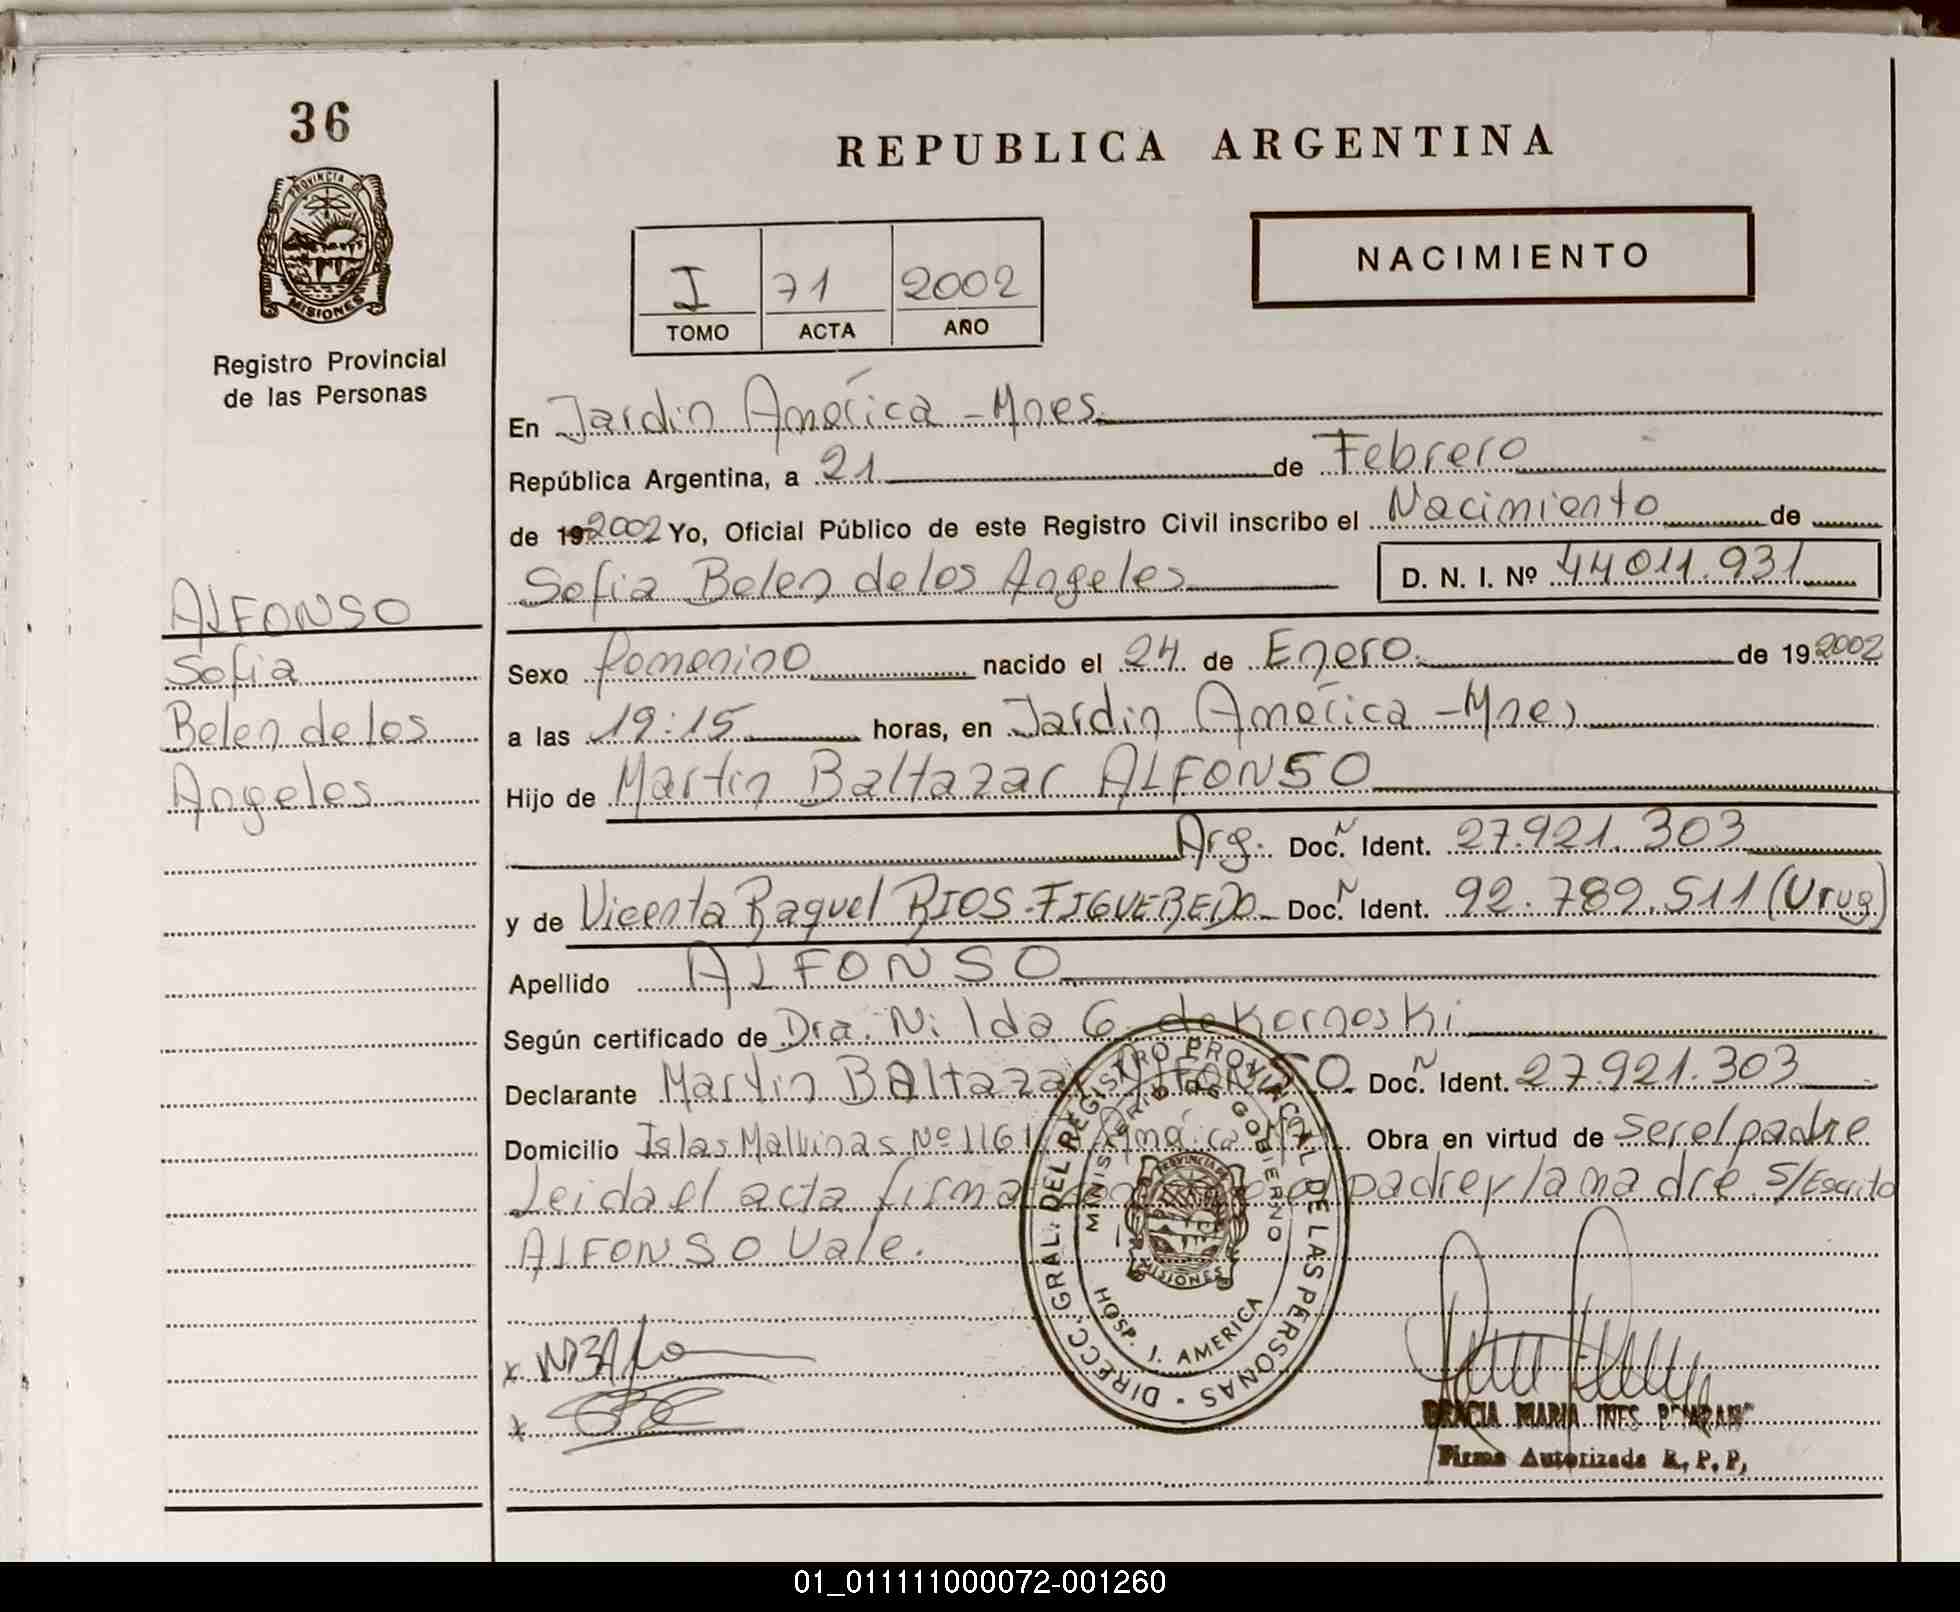 36
PROVINCIA DE
MISIONES
Registro Provincial
de las Personas
ALFONSO
Sofia
Belen de los
Angeles
REPUBLICA ARGENTINA
I 71 2002
TOMO ACTA AÑO
NACIMIENTO
En Jardin América - Mnes
República Argentina, a 21 de Febrero
de 19 2002 Yo, Oficial Público de este Registro Civil inscribo el Nacimiento de
Sofia Belen de los Angeles D. N. I. Nº 44011.931
Sexo femenino nacido el 24 de Enero de 19 2002
a las 19:15 horas, en Jardin América - Mnes
Hijo de Martin Baltazar ALFONSO
Arg. Doc. Ident. 27.921.303
y de Vicenta Raquel RIOS - FIGUEREDO Doc. Ident. 92.789.511 (Urug)
Apellido ALFONSO
Según certificado de Dra. Nilda G. de Kornoski
Declarante Martin Baltazar ALFONSO Doc. Ident. 27.921.303
Domicilio Islas Malvinas Nº 1161 América Obra en virtud de ser el padre
Leida el acta firma padre y la madre S/Escrito
ALFONSO Vale.
DIRECC. GRAL. DEL REGISTRO PROVINCIAL DE LAS PERSONAS
MINISTERIO DE GOBIERNO
PROVINCIA DE
MISIONES
HOSP. J. AMERICA
MARIA INES
Firma Autorizada R. P. P.
01_011111000072-001260